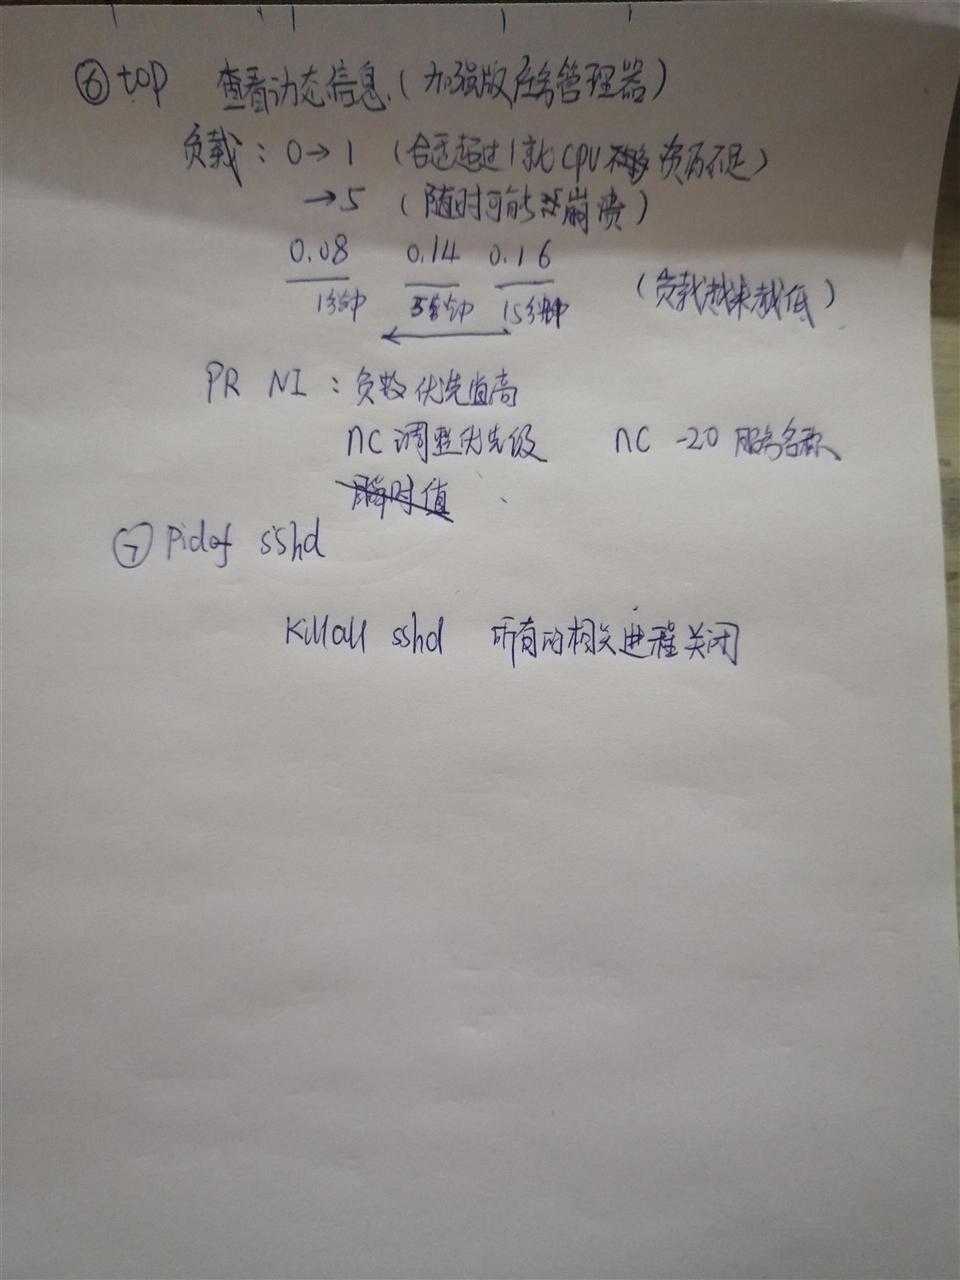 ⑥ top 查看动态信息(加强版任务管理器)
负载: 0→1 (合适超过1就CPU 资不足)
→5 (随时可能崩溃)
0.08 0.14 0.16
1分钟 5分钟 15分钟 (负载越来越低)
PR NI: 负数优先值高
nc 调整优先级 nc -20 服务名称
瞬时值
⑦ Pidof sshd
Killall sshd 所有的相关进程关闭